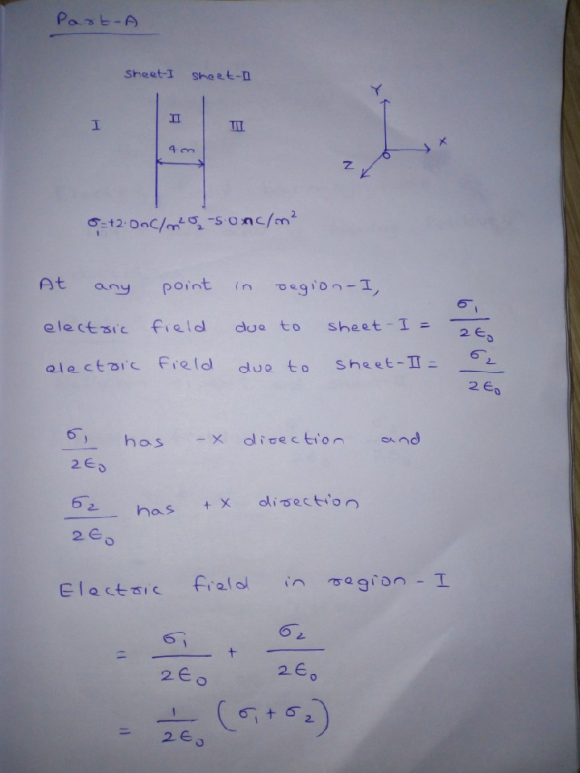 Part-A
Sheet-I Sheet-II
I II III
4m
Y
X
O
Z
σ₁=+2.0nC/m² σ₂ -5.0nC/m²
At any point in region-I,
electric field due to sheet-I = σ₁/2ϵ₀
electric field due to sheet-II = σ₂/2ϵ₀
σ₁/2ϵ₀ has -X direction and
σ₂/2ϵ₀ has +X direction
Electric field in region-I
= σ₁/2ϵ₀ + σ₂/2ϵ₀
= 1/2ϵ₀ (σ₁+σ₂)